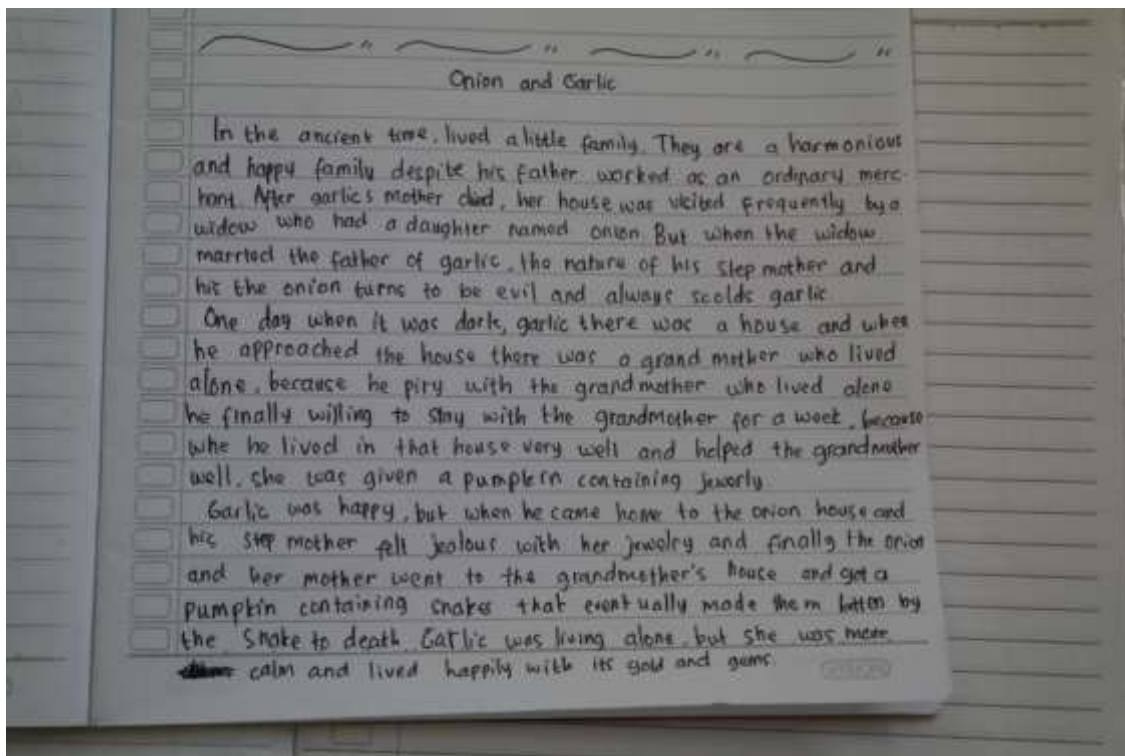 Onion and Garlic
In the ancient time, lived a little family. They are a harmonious
and happy family despite his father worked as an ordinary merc-
hant. After garlic's mother died, her house was visited frequently by a
widow who had a daughter named onion. But when the widow
married the father of garlic, the nature of his step mother and
his the onion turns to be evil and always scolds garlic.
One day when it was dark, garlic there was a house and when
he approached the house there was a grand mother who lived
alone, because he piry with the grandmother who lived alone
he finally willing to stay with the grandmother for a week, because
whe he lived in that house very well and helped the grandmother
well, she was given a pumpkin containing jeworly
Garlic was happy, but when he came home to the onion house and
his step mother felt jealous with her jewelry and finally the onion
and her mother went to the grandmother's house and got a
pumpkin containing snakes that eventually made them bitten by
the snake to death. Garlic was living alone, but she was more
calm and lived happily with its gold and gems.